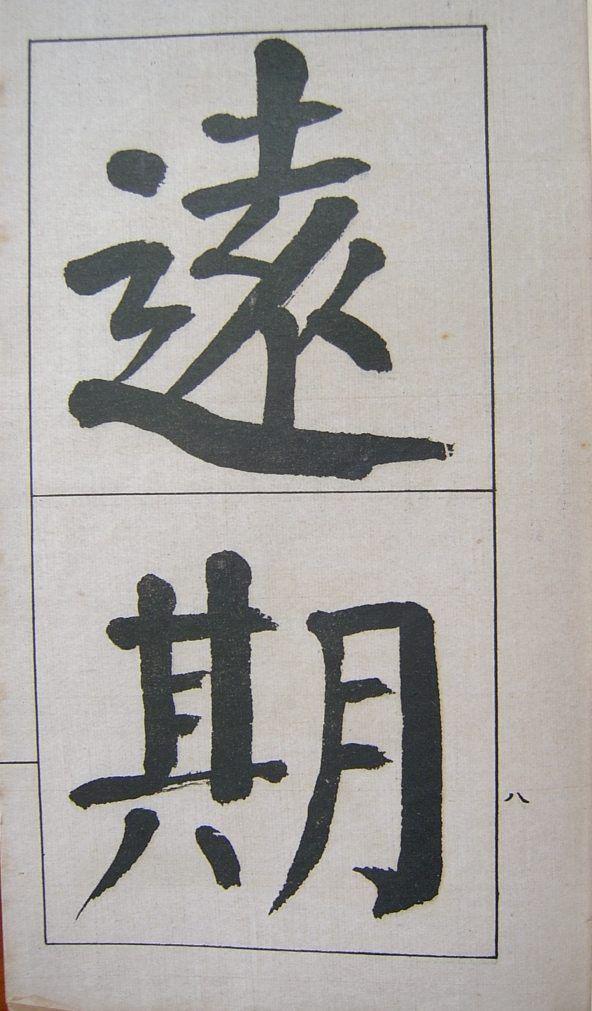 遠
期
八